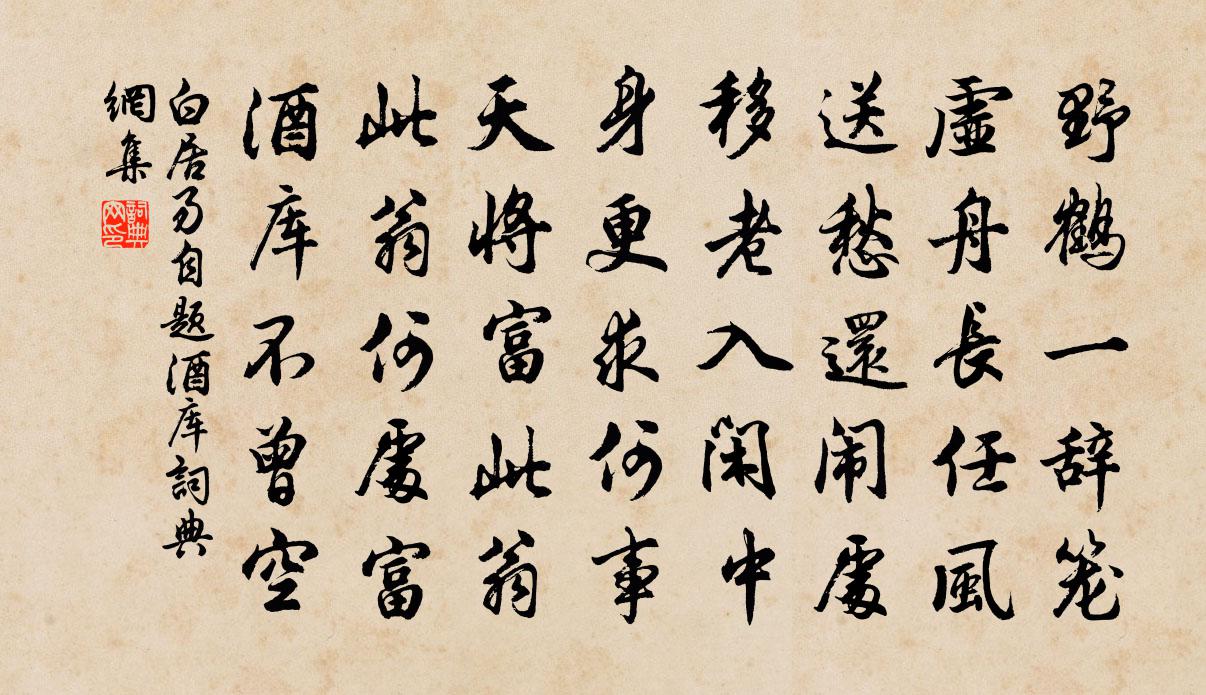 野鶴一辞笼
虛舟長任風
送愁還闹處
移老入闲中
身更求何事
天將富此翁
此翁何處富
酒库不曾空
白居易自题酒库詞典
網集
詞典网印